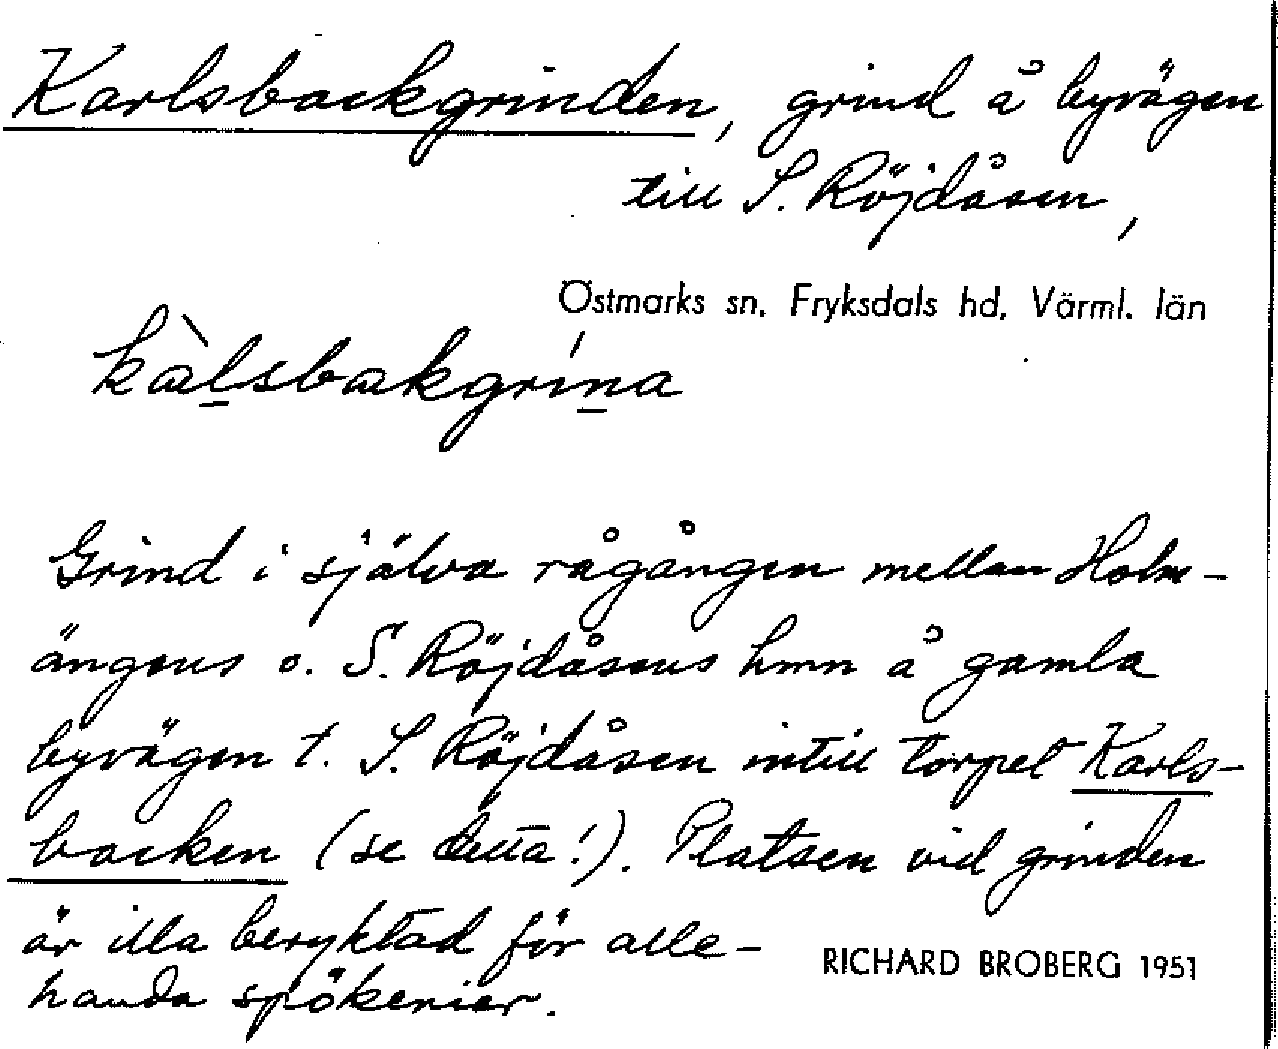 Karlsbackgrinden, grind å byvägen
till S. Röjdåsen,
Östmarks sn. Fryksdals hd. Värml. län
kàl̠sbakgrín̠a
Grind i själva rågången mellan Holm-
ängens o. S. Röjdåsens hmn å gamla
byvägen t. S. Röjdåsen intill torpet Karls-
backen (se detta!). Platsen vid grinden
är illa beryktad för alle-
handa spökerier.
RICHARD BROBERG 1951